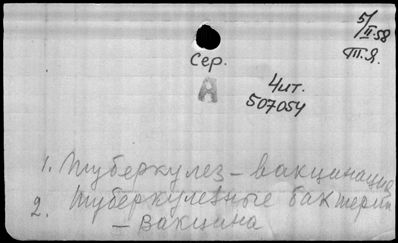 5/II.58
Т.Я.
Сер.
А
Чит.
507054
1. Туберкулез – вакцинация
2. Туберкулезные бактерии
– вакцина